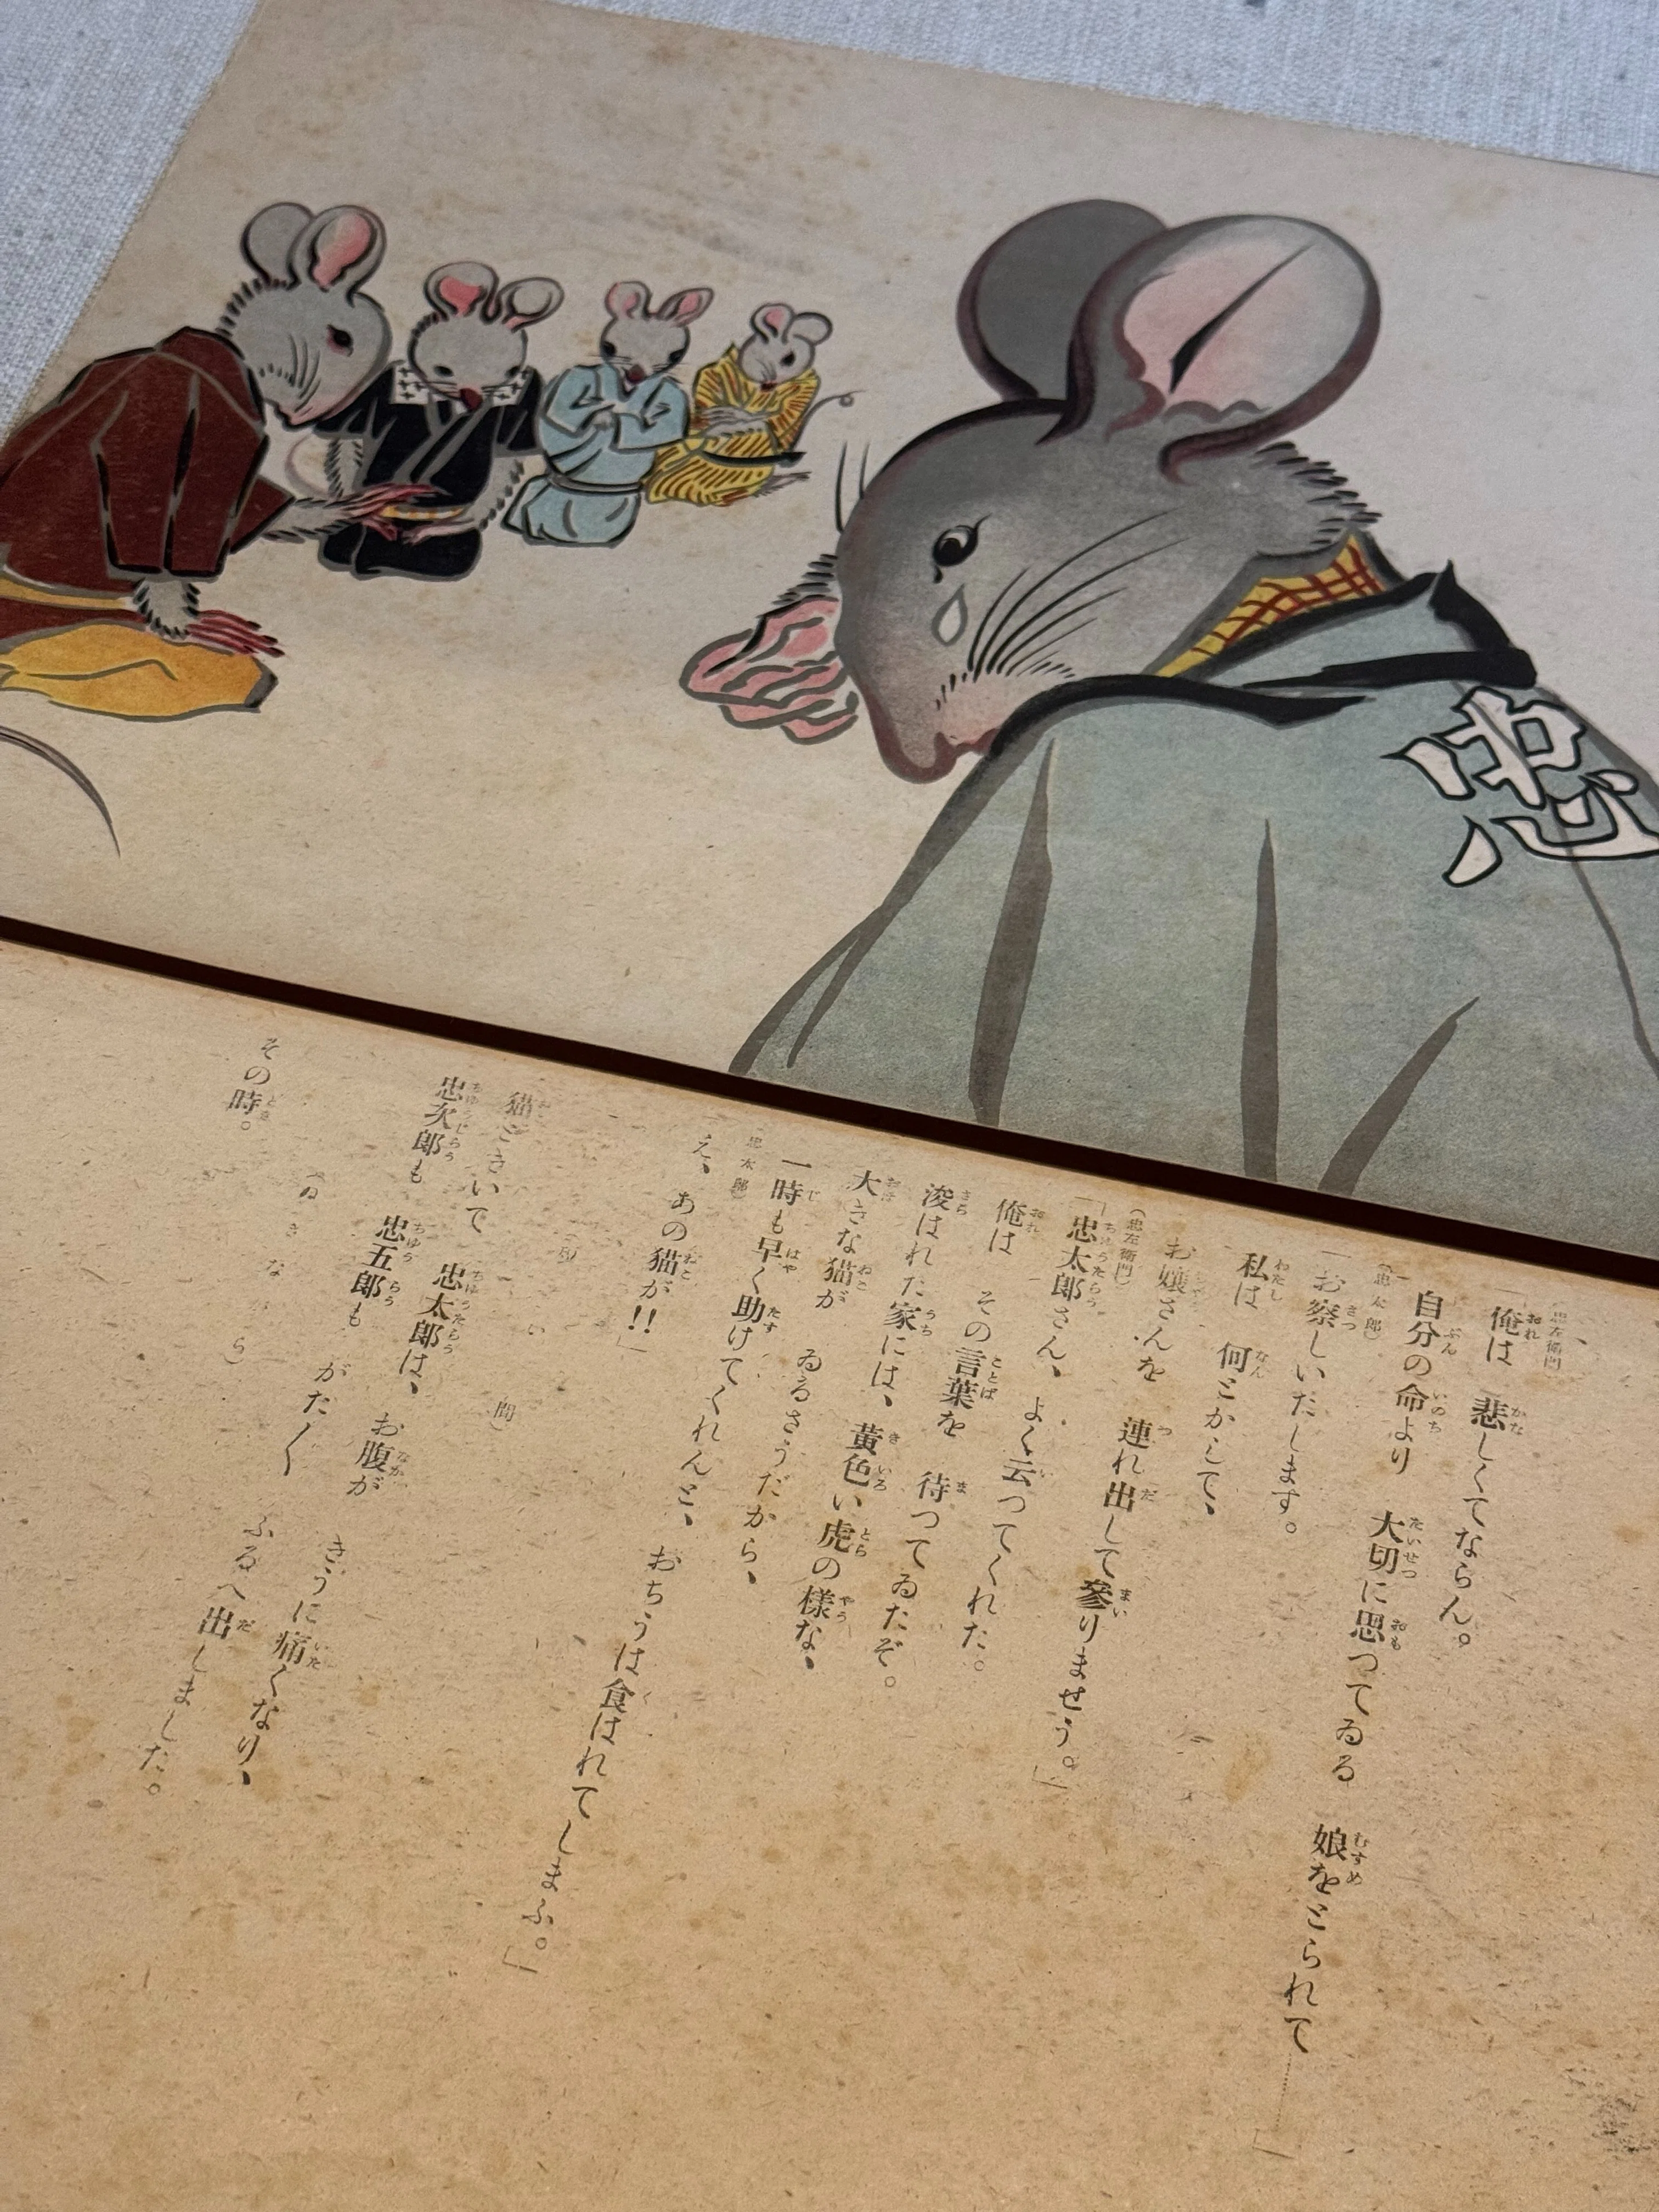 忠
(忠左衛門)
「俺は 悲しくてならん。
自分の命より 大切に思つてゐる 娘をとられて………」
(忠太郎)
「お察しいたします。
私は 何とかして、
お嬢さんを 連れ出して參りませう。」
(忠左衛門)
「忠太郎さん、 よく云つてくれた。
俺は その言葉を 待つてゐたぞ。
浚はれた家には、 黄色い虎の様な、
大きな猫が ゐるさうだから、
一時も早く助けてくれんと、 おちうは食はれてしまふ。」
(忠太郎)
え、 あの猫が!!」
間)
猫ときいて 忠太郎は、 お腹が きうに痛くなり、
忠次郎も 忠五郎も がた〱 ふるへ出しました。
きながら)
その時。